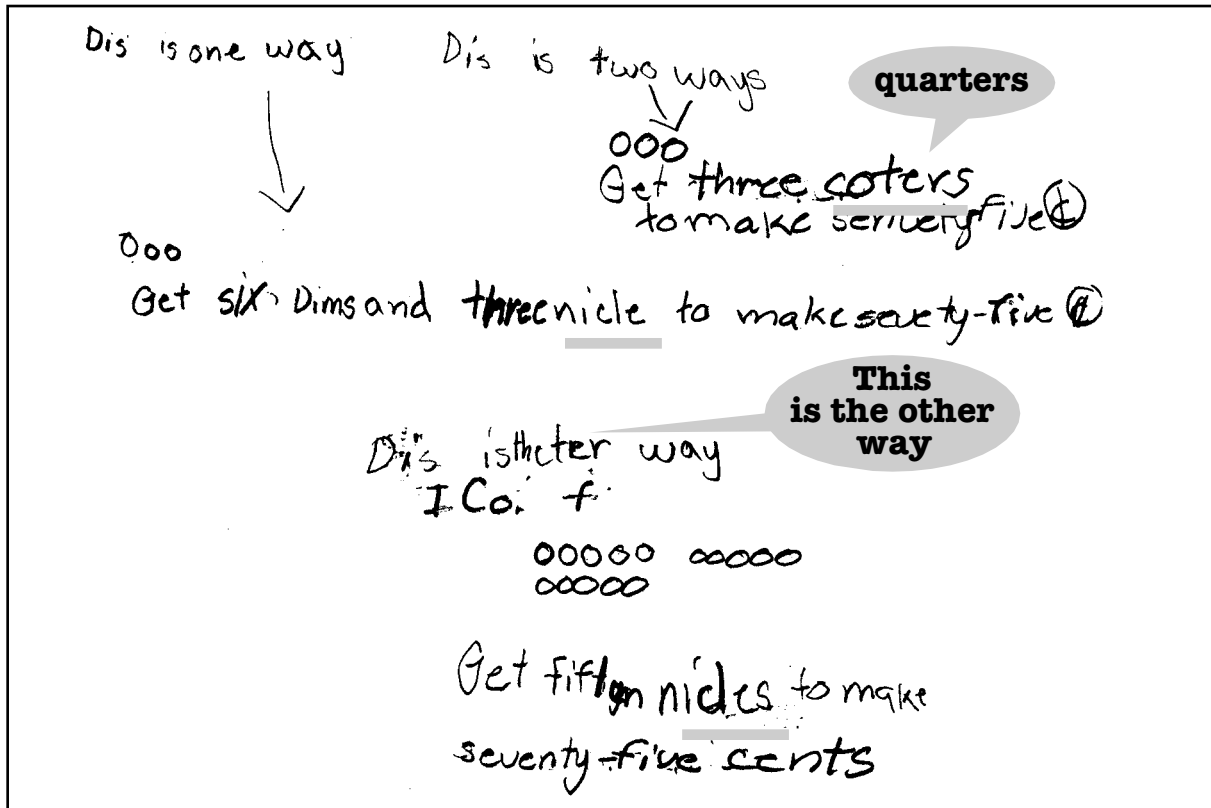 Dis is one way
Dis is two ways
quarters
000
Get three coters
to make servety five ¢
000
Get six Dims and three nicle to make sevety-five ¢
This
is the other
way
Dis is theter way
I Co. f
00000 00000
00000
Get nicles to make
seventy-five cents